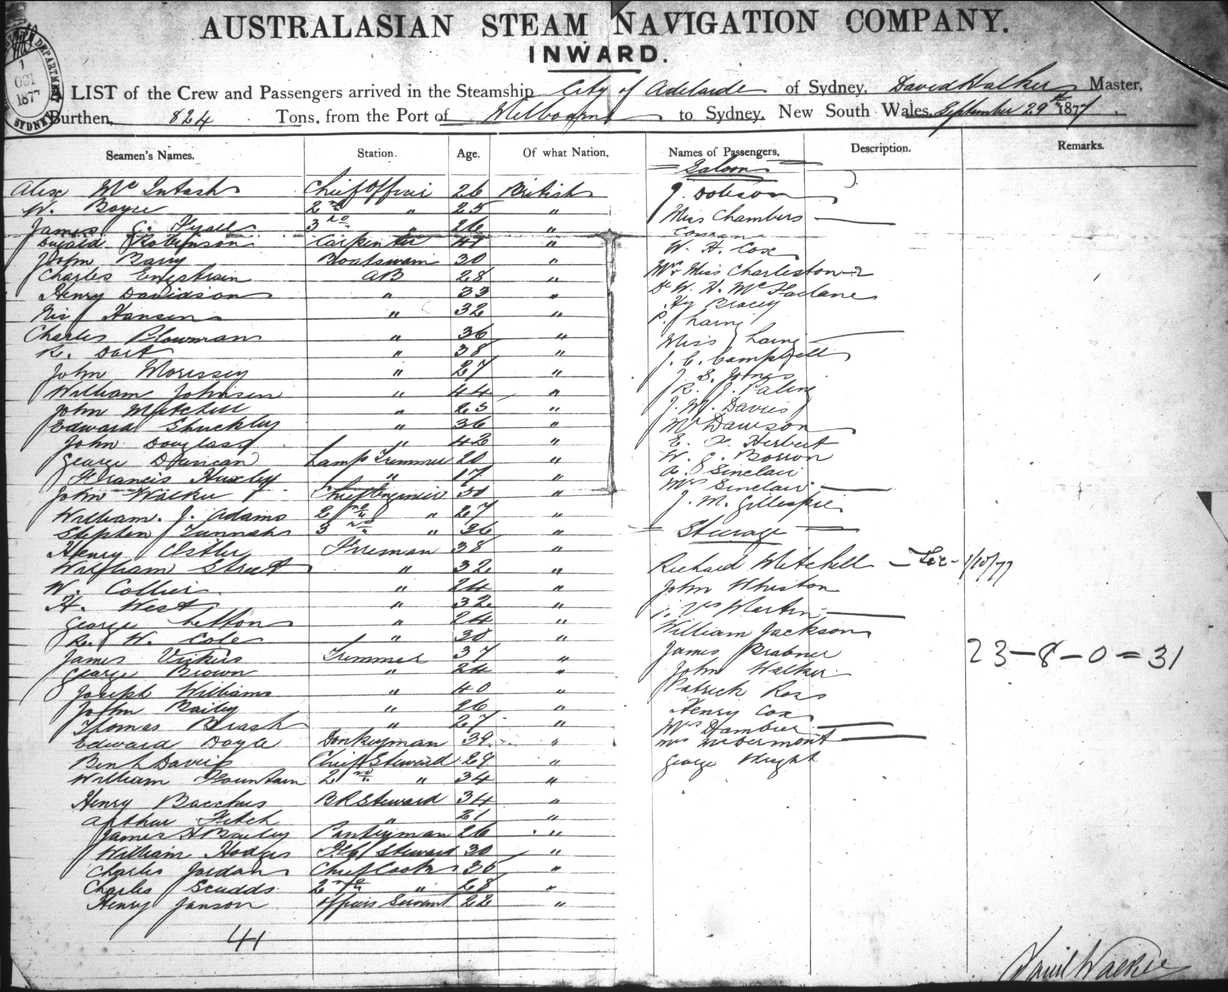 AUSTRALASIAN STEAM NAVIGATION COMPANY.
INWARD.
A LIST of the Crew and Passengers arrived in the Steamship City of Adelaide of Sydney, David Walker Master,
Burthen, 824 Tons, from the Port of Melbourne to Sydney, New South Wales, September 29th 1877
Seamen's Names. Station. Age. Of what Nation.
Alex McIntosh Chief Officer 26 British
W. Boyce 2nd " 25 "
James C. 3rd " 26 "
Donald Robinson Carpenter 47 "
John Barry Boatswain 30 "
Charles AB 28 "
Henry Davidson " 33 "
Hansen " 32 "
Charles Plowman " 36 "
R. Dart " 38 "
John Morissey " 27 "
William Johnson " 44 "
John Mitchell " 23 "
Edward Shuckley " 36 "
John Douglass " 43 "
George Duncan Lamp Trimmer 20 "
Francis Huxley " 17 "
John Walker Chief Engineer 30 "
William. J. Adams 2nd " 27 "
Stephen 3rd " 26 "
Henry Ostler Fireman 38 "
William Street " 32 "
W. Collier " 24 "
H. West " 32 "
George " 24 "
R. W. Cole " 30 "
James Vickers Trimmer 37 "
George Brown " 24 "
Joseph Williams " 40 "
John Bailey " 26 "
Thomas Brash " 27 "
Edward Doyle Donkeyman 39 "
Ben L Davies Chief Steward 29 "
William Fountain 2nd " 34 "
Henry Bacchus BRSteward 34 "
Arthur Fitch " 21 "
James H Bailey Pantryman 26 "
William Hodges Steward 30 "
Charles Jordan Chief Cook 35 "
Charles Scudds 2nd " 28 "
Henry Janson Officers Servant 22 "
41
Names of Passengers, Description. Remarks.
Saloon
J. Dobson
Miss Chambers
W. H. Cox
Mr & Miss Charleston 2
W. H. McFarlane
Hy Bracey
P. Laing
Miss Laing
J. C. Campbell
J. S. Jones
R. J. Paling
J. M. Davies
Mr Dawson
E. F. Herbert
W. C. Borron
A. Sinclair
Mrs Sinclair
J. M. Gillespie
Steerage
Richard Mitchell 1/10/77
John Whiston
Martin
William Jackson
James Brabner
John Walker
Patrick Ross
Henry Cox
Mrs Hambier
Mrs McDermont
George Wright
23-8-0=31
David Walker